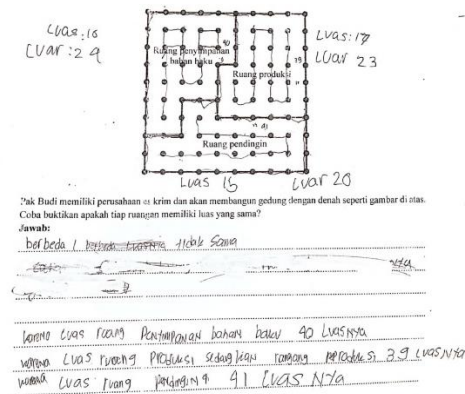 Luas: 16
Luar: 29
40
Ruang penyimpanan
bahan baku
Ruang produksi
Luas: 17
Luar 23
39
41
Ruang pendingin
Luas 15
Luar 20
Pak Budi memiliki perusahaan es krim dan akan membangun gedung dengan denah seperti gambar di atas.
Coba buktikan apakah tiap ruangan memiliki luas yang sama?
Jawab:
berbeda / tidak sama
karena Luas ruang Penyimpanan bahan baku 40 Luasnya
karena Luas ruang Produksi sedangkan 39 Luasnya
karena Luas ruang pendingin 41 Luas Nya